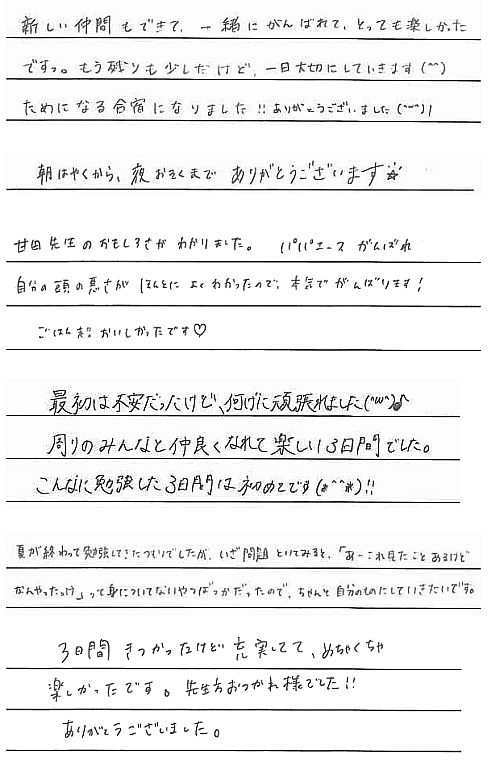 新しい仲間もできて、一緒にがんばれて、とっても楽しかった
ですっ。もう残りも少しだけど、一日大切にしていきます(^^)
ためになる合宿になりました!!ありがとうございました(^~^)!
朝はやくから、夜おそくまで ありがとうございます☆
甘田先生のおもしろさがわかりました。 パパエース がんばれ
自分の頭の悪さがほんとによくわかったので、本気でがんばります!
ごはん超おいしかったです♡
最初は不安だったけど、何げに頑張れました(^w^)♪
周りのみんなと仲良くなれて楽しい3日間でした。
こんなに勉強した3日間は初めてです(*^^*)!!
夏が終わって勉強してきたつもりでしたが、いざ問題といてみると、「あーこれ見たことあるけど
なんやったっけ」って身についてないやつばっかだったので、ちゃんと自分のものにしていきたいです。
3日間 きつかったけど充実してて、めちゃくちゃ
楽しかったです。先生方おつかれ様でした!!
ありがとうございました。